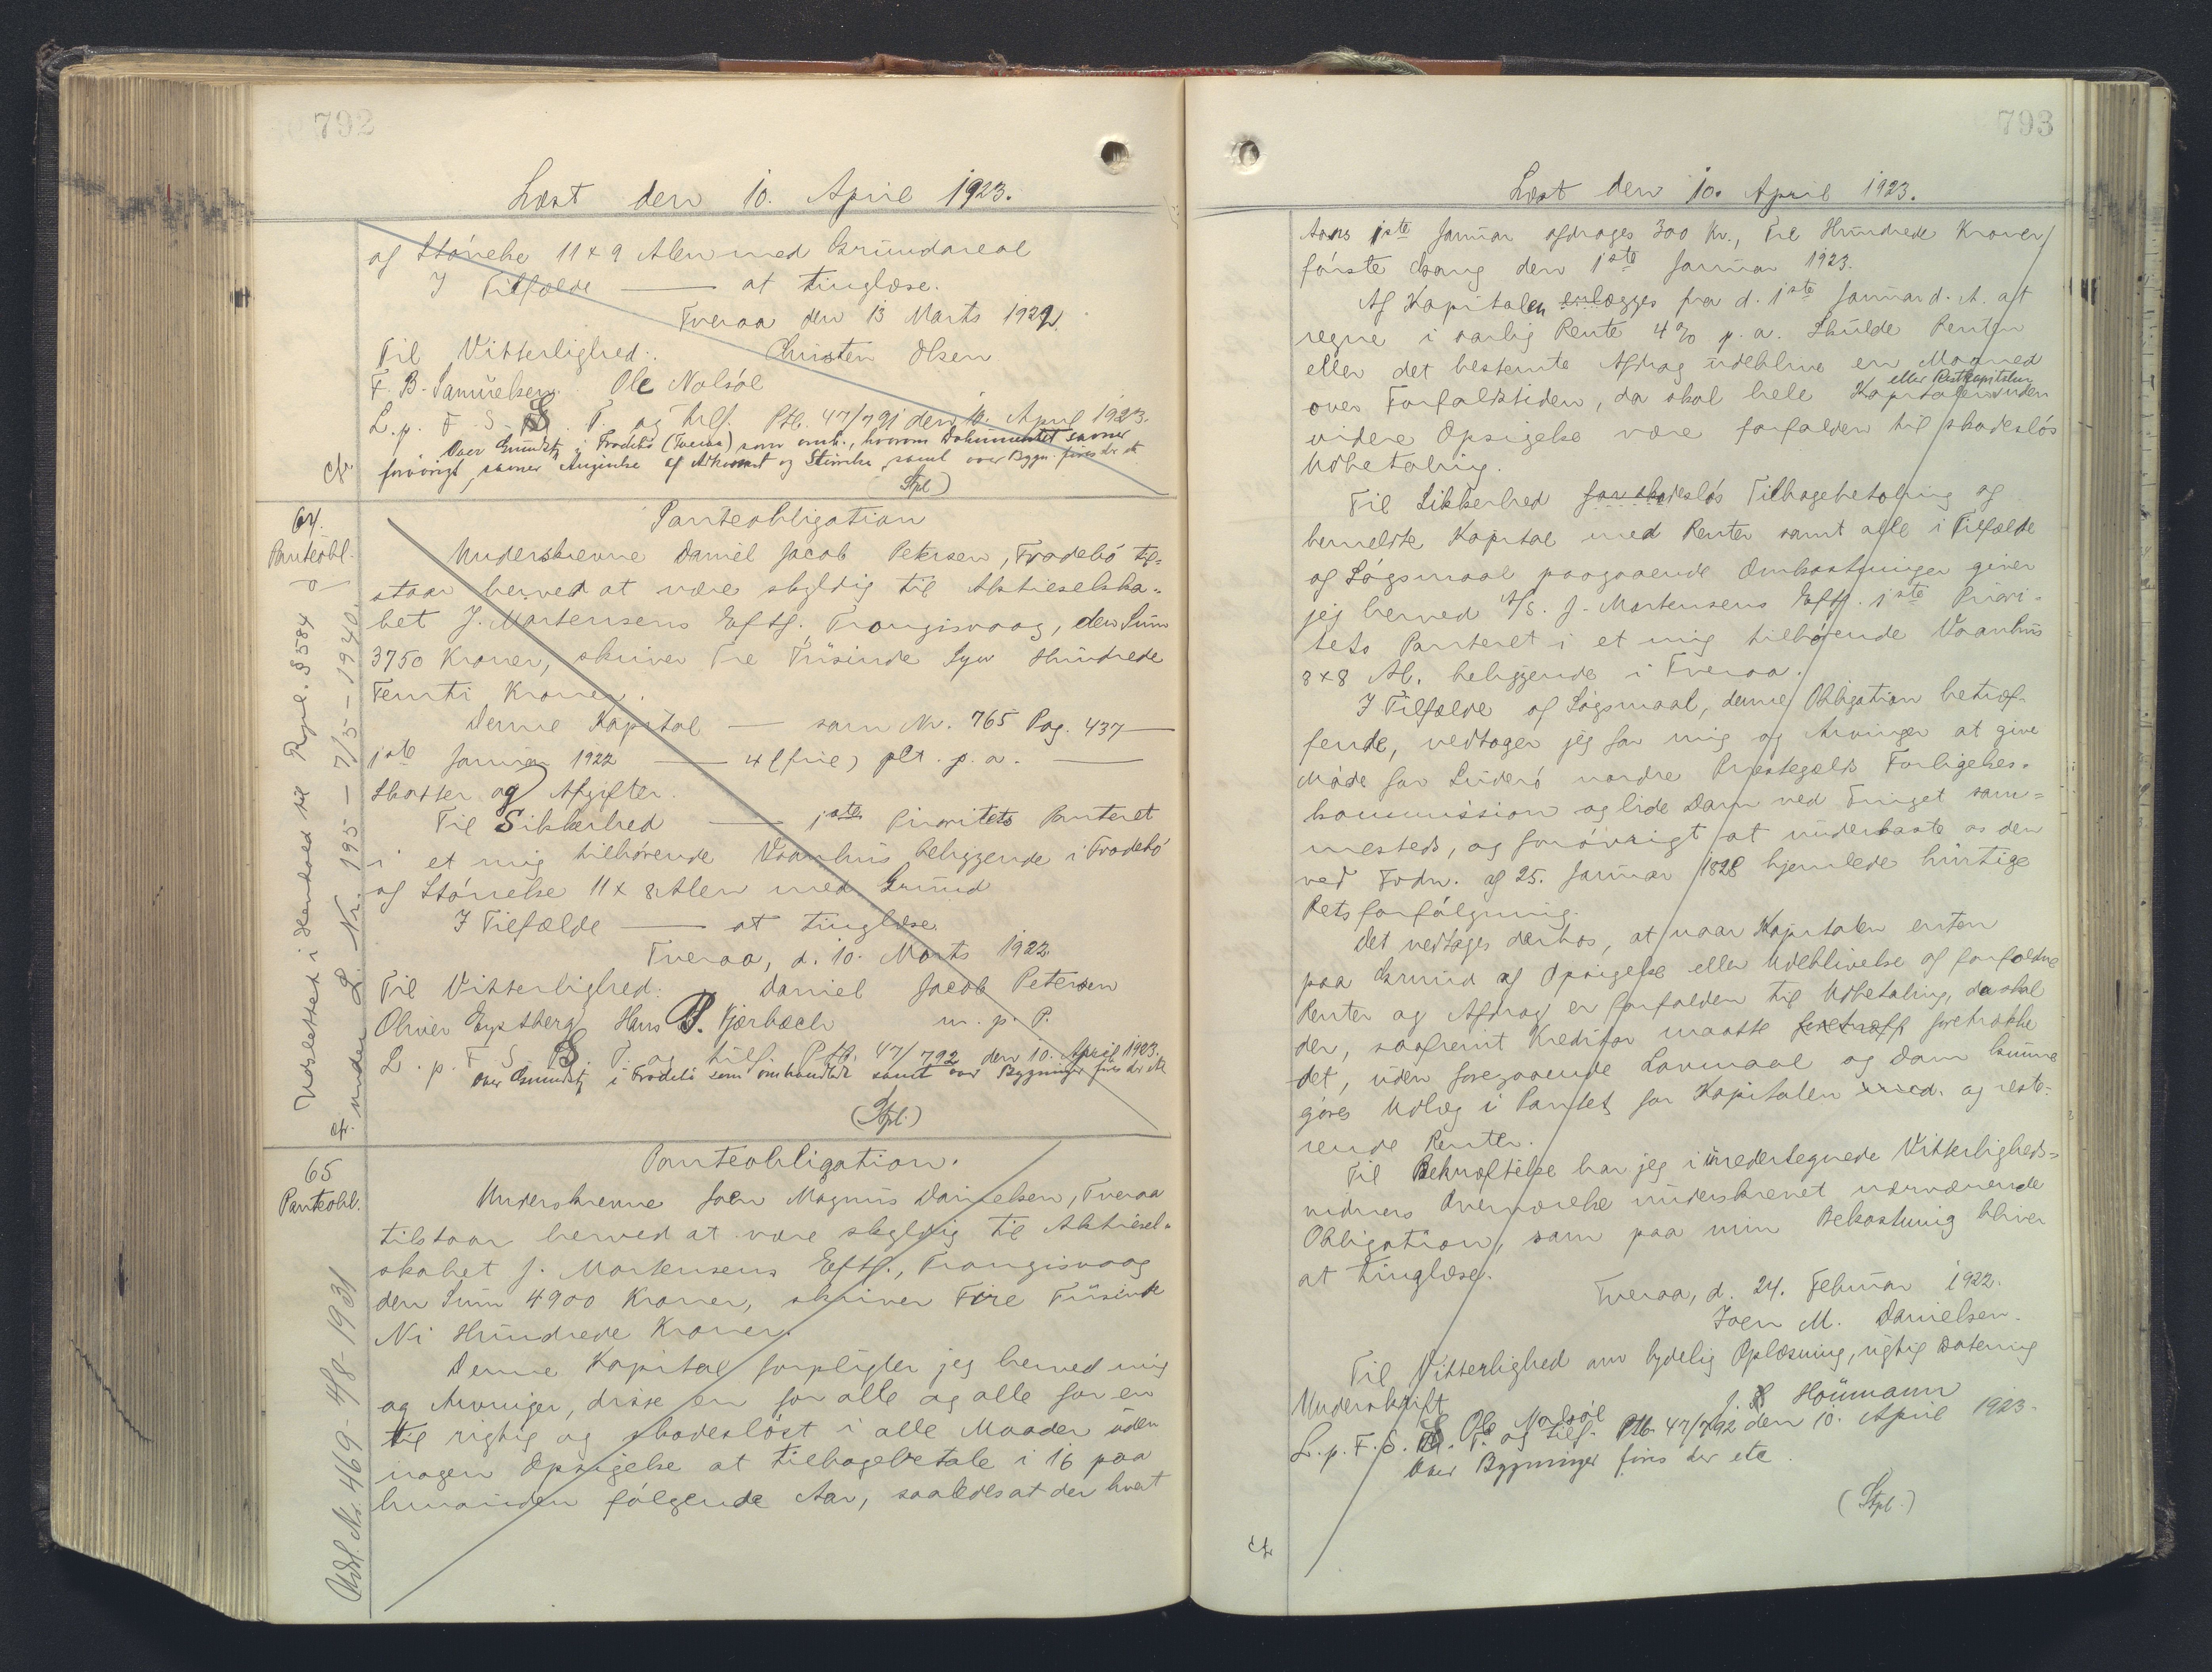 792
Læst den 10. April 1923.
af Stórrelse 11 x 9 Alen med Grundareal
I Tilfælde — at tinglæse.
Tveraa den 13 Marts 1922.
Til Vitterlighed: Christen Olsen
F. B. Samuelsen. Ole Nolsöe
L. p. F. S. S. T. og tilf. Ptb. 47/791 den 10. April 1923.
Over Grundst. i Frodebö (Tveraa) som omh., hvorom Dokumentet savner
forövrigt, savner Angivelse af Adkomst og Störrelse, samt over Bygn. fires der etc
cfr.
(Stpl.)
64.
Panteobl.
Udslettet i Henhold til Rgpl. § 584
under L. Nr. 195 - 7/5 - 1940.
Panteobligation
Underskrevne Daniel Jacob Petersen, Frodebö til-
staar herved at være skyldig til Aktieselska-
bet J. Mortensens Eftf. Trangisvaag, den Sum
3750 Kroner, skriver Tre Tusinde Syv Hundrede
Femti Kroner.
Denne Kapital — som Nr. 765 Pag. 437 —
1ste Januar 1922 — 4 (fire) pCt. p. a. —
Skatter og Afgifter.
Til Sikkerhed — 1ste Prioritets Panteret
i et mig tilhörende Vaanhus beliggende i Frodebö
af Störrelse 11 x 8 Alen med Grund
I Tilfælde — at tinglæse.
Tveraa, d. 10. Marts 1922
Til Vitterlighed: Daniel Jacob Petersen
Oliver Eystberg Hans B. Kjærbæch m. p. P.
L. p. F. S. S. T. og tilf. Ptb. 47/792 den 10. April 1923.
Over Grundst. i Frodebö som omhandlet samt over Bygninger fires der etc
cfr.
(Stpl.)
65
Panteobl.
Udsl. Nr. 469 - 4/8 - 1931
Panteobligation.
Underskrevne Joen Magnus Danielsen, Tveraa
tilstaar herved at være skyldig til Aktiesel-
skabet J. Mortensens Eftf., Trangisvaag
den Sum 4900 Kroner, skriver Fire Tusinde
Ni Hundrede Kroner.
Denne Kapital forpligter jeg herved mig
og Arvinger, disse en for alle og alle for en
til rigtig og skadeslöst i alle Maader uden
nogen Opsigelse at tilbagebetale i 16 paa
hinanden fölgende Aar, saaledes at der hvert
793
Læst den 10. April 1923.
Aars 1ste Januar afdrages 300 Kr., Tre Hundrede Kroner,
förste Gang den 1ste Januar 1923.
Af Kapitalen erlægges fra d. 1ste Januar d. A. at
regne i aarlig Rente 4% p. a. Skulde Renten
eller det bestemte Afdrag udeblive en Maaned
eller Restkapitalen
over Forfaldstiden, da skal hele Kapitalen uden
videre Opsigelse være forfalden til skadeslös
Udbetaling.
Til Sikkerhed for skadeslös Tilbagebetaling af
bemeldte Kapital med Renter samt alle i Tilfælde
af Lögsmaal paagaaende Omkostninger giver
jeg herved A/S. J. Mortensens Eftf. 1ste Priori-
tets Panteret i et mig tilhörende Vaanhus
8 x 8 Al. beliggende i Tveraa.
I Tilfælde af Sögsmaal, denne Obligation betræf-
fende, vedtager jeg for mig og Arvinger at give
Möde for Suderö nordre Præstegælds Forligelses-
kommission og lide Dom ved Tinget sam-
mesteds, og forövrigt at underkaste os den
ved Frdn. af 25. Januar 1828 hjemlede hurtige
Retsforfölgning.
Det vedtages derhos, at naar Kapitalen enten
paa Grund af Opsigelse eller Udeblivelse af forfaldne
Renter og Afdrag er forfalden til Udbetaling, da skal
der, saafremt Kreditor maatte foretræff foretrække
det, uden foregaaende Lovmaal og Dom kunne
göres Udlæg i Pantet for Kapitalen med. og reste-
rende Renter.
Til Bekræftelse har jeg i undertegnede Vitterligheds-
vidners Overværelse underskrevet nærværende
Obligation, som paa min Bekostning bliver
at tinglæse.
Tveraa, d. 24. Februar 1922.
Joen M. Danielsen.
Til Vitterlighed om lydelig Oplæsning, rigtig Datering
Underskrift
Ole Nolsöe
L. p. F. S. S. T. og tilf. Ptb. 47/792 den 10. April 1923.
Over Bygninger fires der etc.
(Stpl.)
cfr